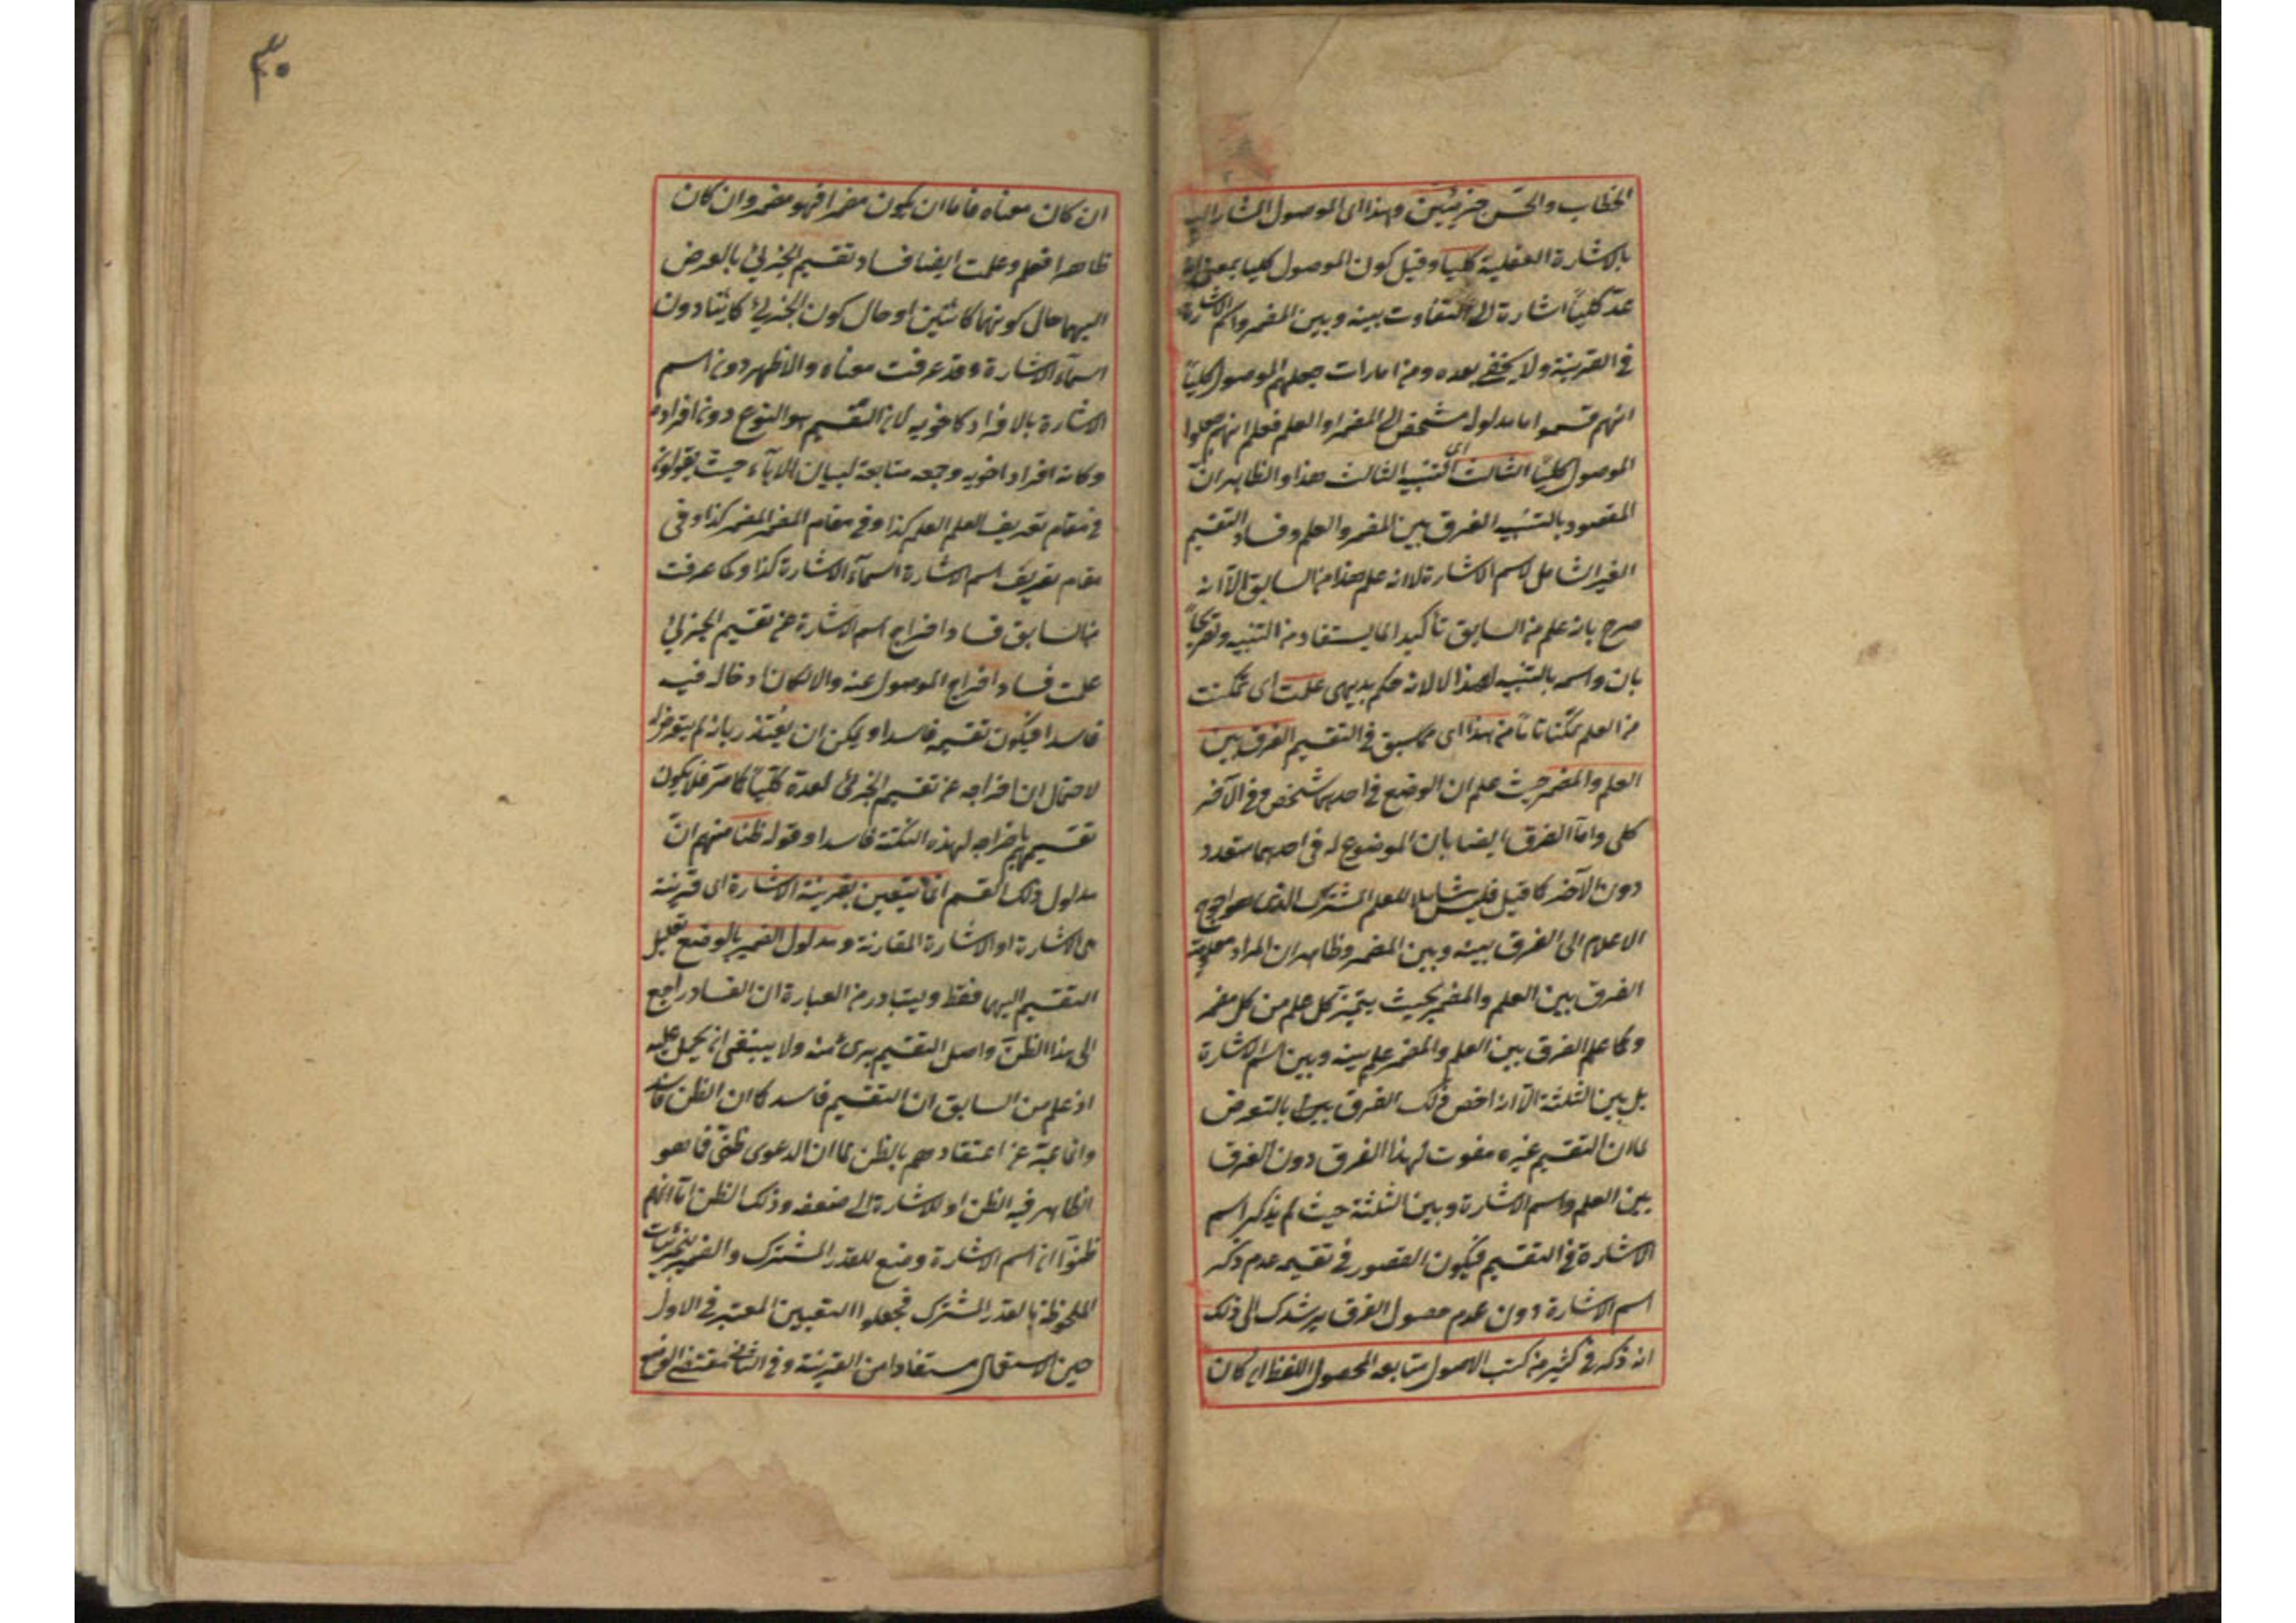 الخطاب والحس جزئيين وهذا اى الموصول المشار اليه
بالاشارة العقلية كليا وقيل كون الموصول كليا بمعنى انه
عد كلياً اشارة الى التفاوت بينه وبين المضمر واسم الاشارة
فى القرينة ولا يخفى بعده ومن امارات جعلهم الموصول كلياً
انهم قسموا ما مدلوله مشخص الى المضمر او العلم فعلم انهم جعلوا
الموصول كلياً الثالث اى التنبيه الثالث هذا والظاهر ان
المقصود بالتنبيه الفرق بين المضمر والعلم وفساد التقسيم
الغير الشامل لاسم الاشارة لانه علم هذا من السابق الا انه
صرح بانه علم من السابق تأكيدا لما يستفاد من التنبيه وتصريحاً
بان واسمه بالتنبيه لهذا لا لانه حكم بديهى علمت اى تمكنت
من العلم تمكنا تاماً من هذا اى مما سبق فى التقسيم الفرق بين
العلم والمضمر حيث علم ان الوضع فى احدهما مشخص وفى الآخر
كلى واما الفرق ايضا بان الموضوع له فى احدهما متعدد
دون الآخر كما قيل فليس شاملا للعلم المشترك الذى هو احوج
الاعلام الى الفرق بينه وبين المضمر وظاهر ان المراد معلومية
الفرق بين العلم والمضمر بحيث يتميز كل علم من كل مضمر
وكما علم الفرق بين العلم والمضمر علم بينه وبين اسم الاشارة
بل بين الثلثة الا انه اخص ذلك الفرق بالتعرض
لان التقسيم غيره مفوت لهذا الفرق دون الفرق
بين العلم واسم الاشارة وبين الثلثة حيث لم يذكر اسم
الاشارة فى التقسيم فيكون القصور فى تقسيمه عدم ذكر
اسم الاشارة دون عدم حصول الفرق يرشدك الى ذلك
انه ذكر فى كثير من كتب الاصول متابعه المحصول اللفظ ان كان
٣٠
ان كان معناه فاما ان يكون مضمرا فهو مضمر وان كان
ظاهرا فعلم وعلمت ايضا فساد تقسيم الجزئى بالعرض
اليهما حال كونهما كائنين او حال كون الجزئى كائنا دون
اسمآء الاشارة وقد عرفت معناه والاظهر دون اسم
الاشارة بالافراد كاخويه لان التقسيم هو النوع دون افراده
وكانه افراد اخويه وجمعه متابعة لبيان الادباء حيث يقولون
فى مقام تعريف العلم العلم كذا وفى مقام المضمر المضمر كذا وفى
مقام تعريف اسم الاشارة اسمآء الاشارة كذا وكما عرفت
من السابق فساد اخراج اسم الاشارة عن تقسيم الجزئى
علمت فساد اخراج الموصول عنه والا لكان ادخاله فيه
فاسدا فيكون تقسيمه فاسدا ويمكن ان يعتذر بانه لم يتعرض له
لاحتمال ان اخراجه عن تقسيم الجزئى لعده كلياً كما مر فلا يكون
تقسيمهم باخراجه لهذه النكتة فاسدا وقوله ظنا منهم ان
مدلول ذلك القسم انما يتعين بقرينة الاشارة اى قرينة
هى الاشارة او الاشارة المقارنة ومدلول الضمير بالوضع تعليل
التقسيم اليهما فقط ويتبادر من العبارة ان الفساد راجع
الى هذا الظن واصل التقسيم برئ منه ولا ينبغى ان يحمل عليه
اذ علم من السابق ان التقسيم فاسد كما ان الظن فاسد
وانما عبر عن اعتقادهم بالظن لما ان الدعوى ظنى فما هو
الظاهر فيه الظن او للاشارة الى ضعفه وذلك الظن اما انهم
ظنوا ان اسم الاشارة وضع للقدر المشترك والضمير للجزئيات
الملحوظة بالقدر المشترك فجعلوا التعيين المعتبر فى الاول
حين الاستعمال مستفادا من القرينة وفى الثانى مقتضى الوضع